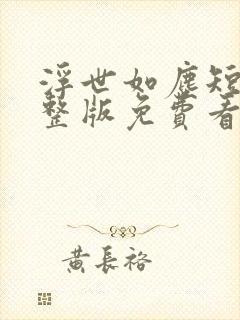 浮世如塵短
整版免費看
黄長裕